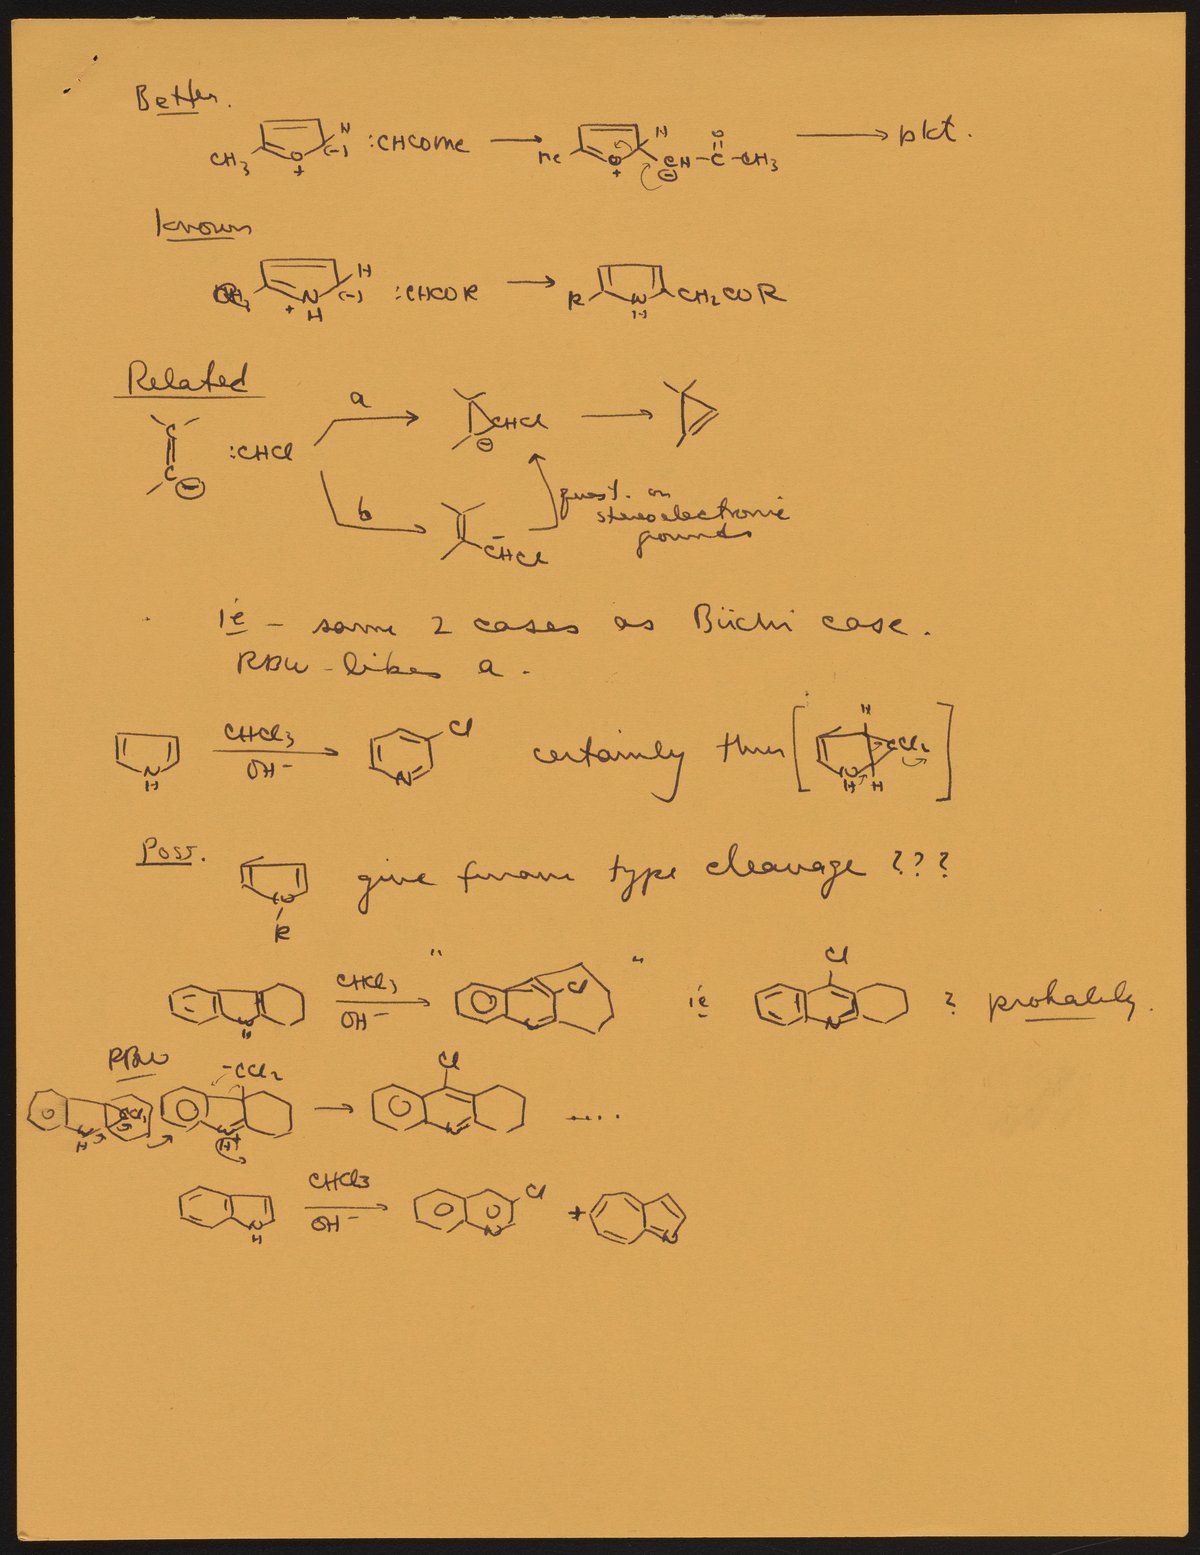 Better.
CH3 O + H (-) :CHCOMe → Me O + H CH ⊖ - C - CH3 O → pdt.
Known
N H + H (-) :CHCOR → R N H CH2COR
Related
a
C C ⊖ :CHCl CHCl ⊖ →
b
CHCl - quest. on
stereoelectronic
grounds
ie - same 2 cases as Büchi case.
RBW - likes a.
N H CHCl3 OH- → Cl N certainly thru [ H CCl2 N H H ]
Poss. N R give furan type cleavage ???
N H CHCl3 OH- → " Cl N " ie Cl N ? probably.
RBW
N H CCl2 -CCl2 N H + → Cl N ....
N H CHCl3 OH- → Cl N + N